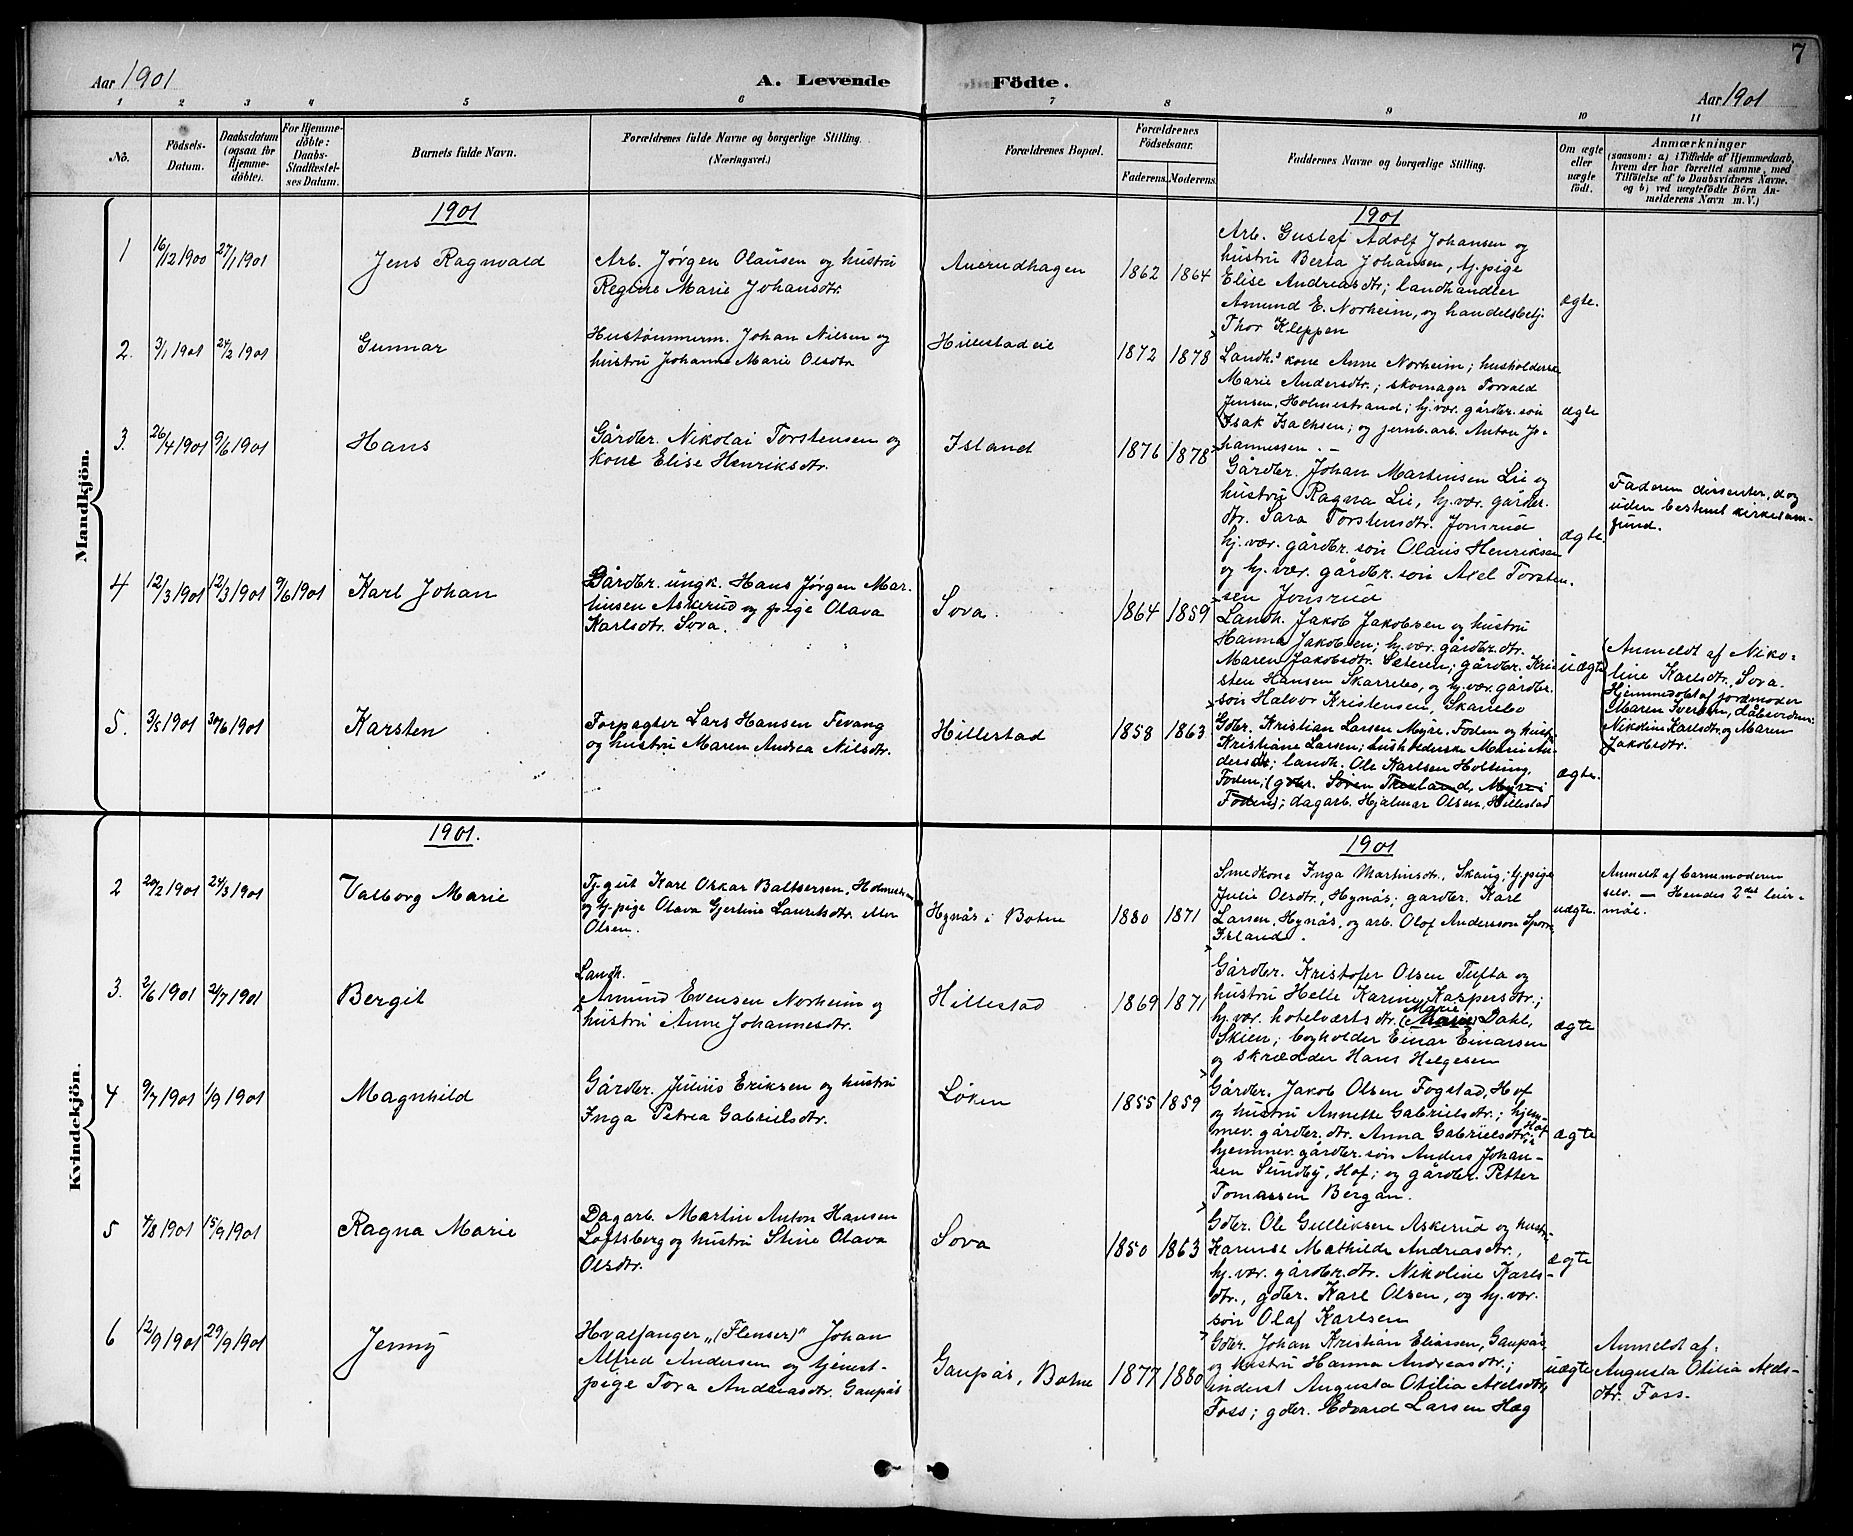 7
Aar 1901
A. Levende Födte.
Aar 1901
1 2 3 4 5 6 7 8 9 10 11
No.
Födsels-
Datum.
Daabsdatum
(ogsaa for
Hjemme-
döbte).
For Hjemme-
döbte:
Daabs-
Stadfæstel-
ses Datum.
Barnets fulde Navn.
Forældrenes fulde Navne og borgerlige Stilling.
(Næringsvei.)
Forældrenes Bopæl.
Forældrenes
Födselsaar.
Faderens. Moderens.
Faddernes Navne og borgerlige Stilling.
Om ægte
eller
uægte
födt.
Anmærkninger
(saasom: a) i Tilfælde af Hjemmedaab,
hvem der har forrettet samme, med
Tilföielse af to Daabsvidners Navne,
og b) ved uægtefödte Börn An-
melderens Navn m. V.)
Mandkjön.
1901
1901
1
16/12 1900
27/1 1901
Jens Ragnvald
Arb. Jørgen Olausen og hustru
Regine Marie Johansdtr.
Auerudhagen
1862
1864
Arb. Gustaf Adolf Johansen og
hustru Berta Johansen, tj. pige
Elise Andreasdtr; landhandler
Asmund E. Norheim, og handelsbetj.
Thor Kleppen
ægte.
2.
3/1 1901
24/2 1901
Gunnar
Hustømmerm. Johan Nilsen og
hustru Johanne Marie Olsdtr
Hillestad eie
1872
1878
Landh.s kone Anne Norheim; husholderske
Marie Andersdtr.; skomager Torvald
Jensen, Holmestrand; hj. vær. gårdbr. søn
Isak Isachsen; og jernb. arb. Anton Jo-
hannessen. —
ægte
3.
26/4 1901
9/6 1901
Hans
Gårdbr. Nikolai Torstensen og
kone Elise Henriksdtr.
Island
1876
1878
Gårdbr. Johan Martinsen Lie og
hustru Ragna Lie, hj. vær. gårdbr.
dtr. Sara Torstensdtr. Jonsrud
hj. vær. gårdbr. søn Olaus Henriksen
og hj. vær. gårdbr. søn Axel Torsten-
sen Jonsrud
ægte.
Faderen dissenter, dog
uden bestemt kirkesam-
fund.
4
12/3 1901
12/3 1901
9/6 1901
Karl Johan
Gårdbr. ungk. Hans Jørgen Mar-
tinsen Askerud og pige Olava
Karlsdtr. Sova.
Sova.
1864
1859
Landh. Jakob Jakobsen og hustru
Hanna Jakobsen; hj. vær. gårdbr. dtr.
Maren Jakobsdtr. Sæteren; gårdbr. Kris-
sten Hansen Skarrebo, og hj. vær. gårdbr.
søn Halvor Kristensen, Skarrebo
uægte
Anmeldt af Niko-
line Karlsdtr. Sova.
Hjemmedøbt af jordmoder
Maren Iversen, dåbsvidner:
Nikoline Karlsdtr. og Maren
Jakobsdtr.
5.
3/5 1901
30/6 1901
Karsten
Forpagter Lars Hansen Fevang
og hustru Maren Andrea Nilsdtr.
Hillestad
1858
1863
Gdbr. Kristian Larsen Myre, Foden og hust.
Kristiane Larsen; husholderske Marie An-
dersdtr; landh. Ole Karlsen Holtung,
Foden; (gdbr. Søren Myre i
Foden); dagarb. Hjalmar Olsen, Hillestad
ægte.
Kvindekjön.
1901.
1901
2
20/2 1901
24/3 1901
Valborg Marie
Tj. gut Karl Oskar Baltsersen, Holmestr.
og tj. pige Olava Gjertine Lauritsdtr. eller
Olsen.
Hynås i Botne
1880
1871
Smedkone Inga Martinsdtr., Skaug; tj. pige
Julie Olsdtr., Hynås; gårdbr. Karl
Larsen, Hynås, og arb. Olof Anderson
Island.
uægte.
Anmeldt af barnemoderen
selv. — Hendes 2det leier-
mål.
3.
2/6 1901
21/7 1901
Bergit
Landh.
Asmund Evensen Norheim og
hustru Anne Johannesdtr.
Hillestad
1869
1871
Gårdbr. Kristofer Olsen Tufta og
hustru Helle Karine Kaspersdtr.;
hj. vær. hotelværts dtr. Marie Dahl,
Skien; bogholder Einar Einarsen
og skrædder Hans Helgesen
ægte
4
9/7 1901
1/9 1901
Magnhild
Gårdbr. Julius Eriksen og hustru
Inga Petrea Gabrielsdtr.
Løken
1855
1859
Gårdbr. Jakob Olsen Fogstad, Hof
og hustru Annette Gabrielsdtr.; hjem-
mev. gårdbr. dtr. Anna Gabrielsdtr., Hof
hjemmev. gårdbr. søn Anders Johan-
sen Sundby, Hof; og gårdbr. Petter
Tomassen Bergan.
ægte
5
4/8 1901
15/9 1901
Ragna Marie
Dagarb. Martin Anton Hansen
Loftsberg og hustru Stine Olava
Olsdtr.
Sova
1850
1863
Gdbr. Ole Gulliksen Askerud og hust.
Karense Mathilde Andreasdtr.,
hj. vær. gårdbr. dtr. Nikoline Karls-
dtr., gdbr. Karl Olsen, og hj. vær.
søn Olaf Karlsen
ægte
6
12/9 1901
29/9 1901
Jenny
Hvalfanger „(Flenser)" Johan
Alfred Andersen og tjenest-
pige Tora Andreasdtr. Gaupås
Gaupås, Botne
1877
1880
Gdbr. Johan Kristian Eliassen, Gaupås
og hustru Hanna Andreasdtr.;
inderst Augusta Otilia Axelsdtr,
Foss; gdbr. Edvard Larsen Hæg
uægte
Anmeldt af
Augusta Otilia Axels-
dtr. Foss.